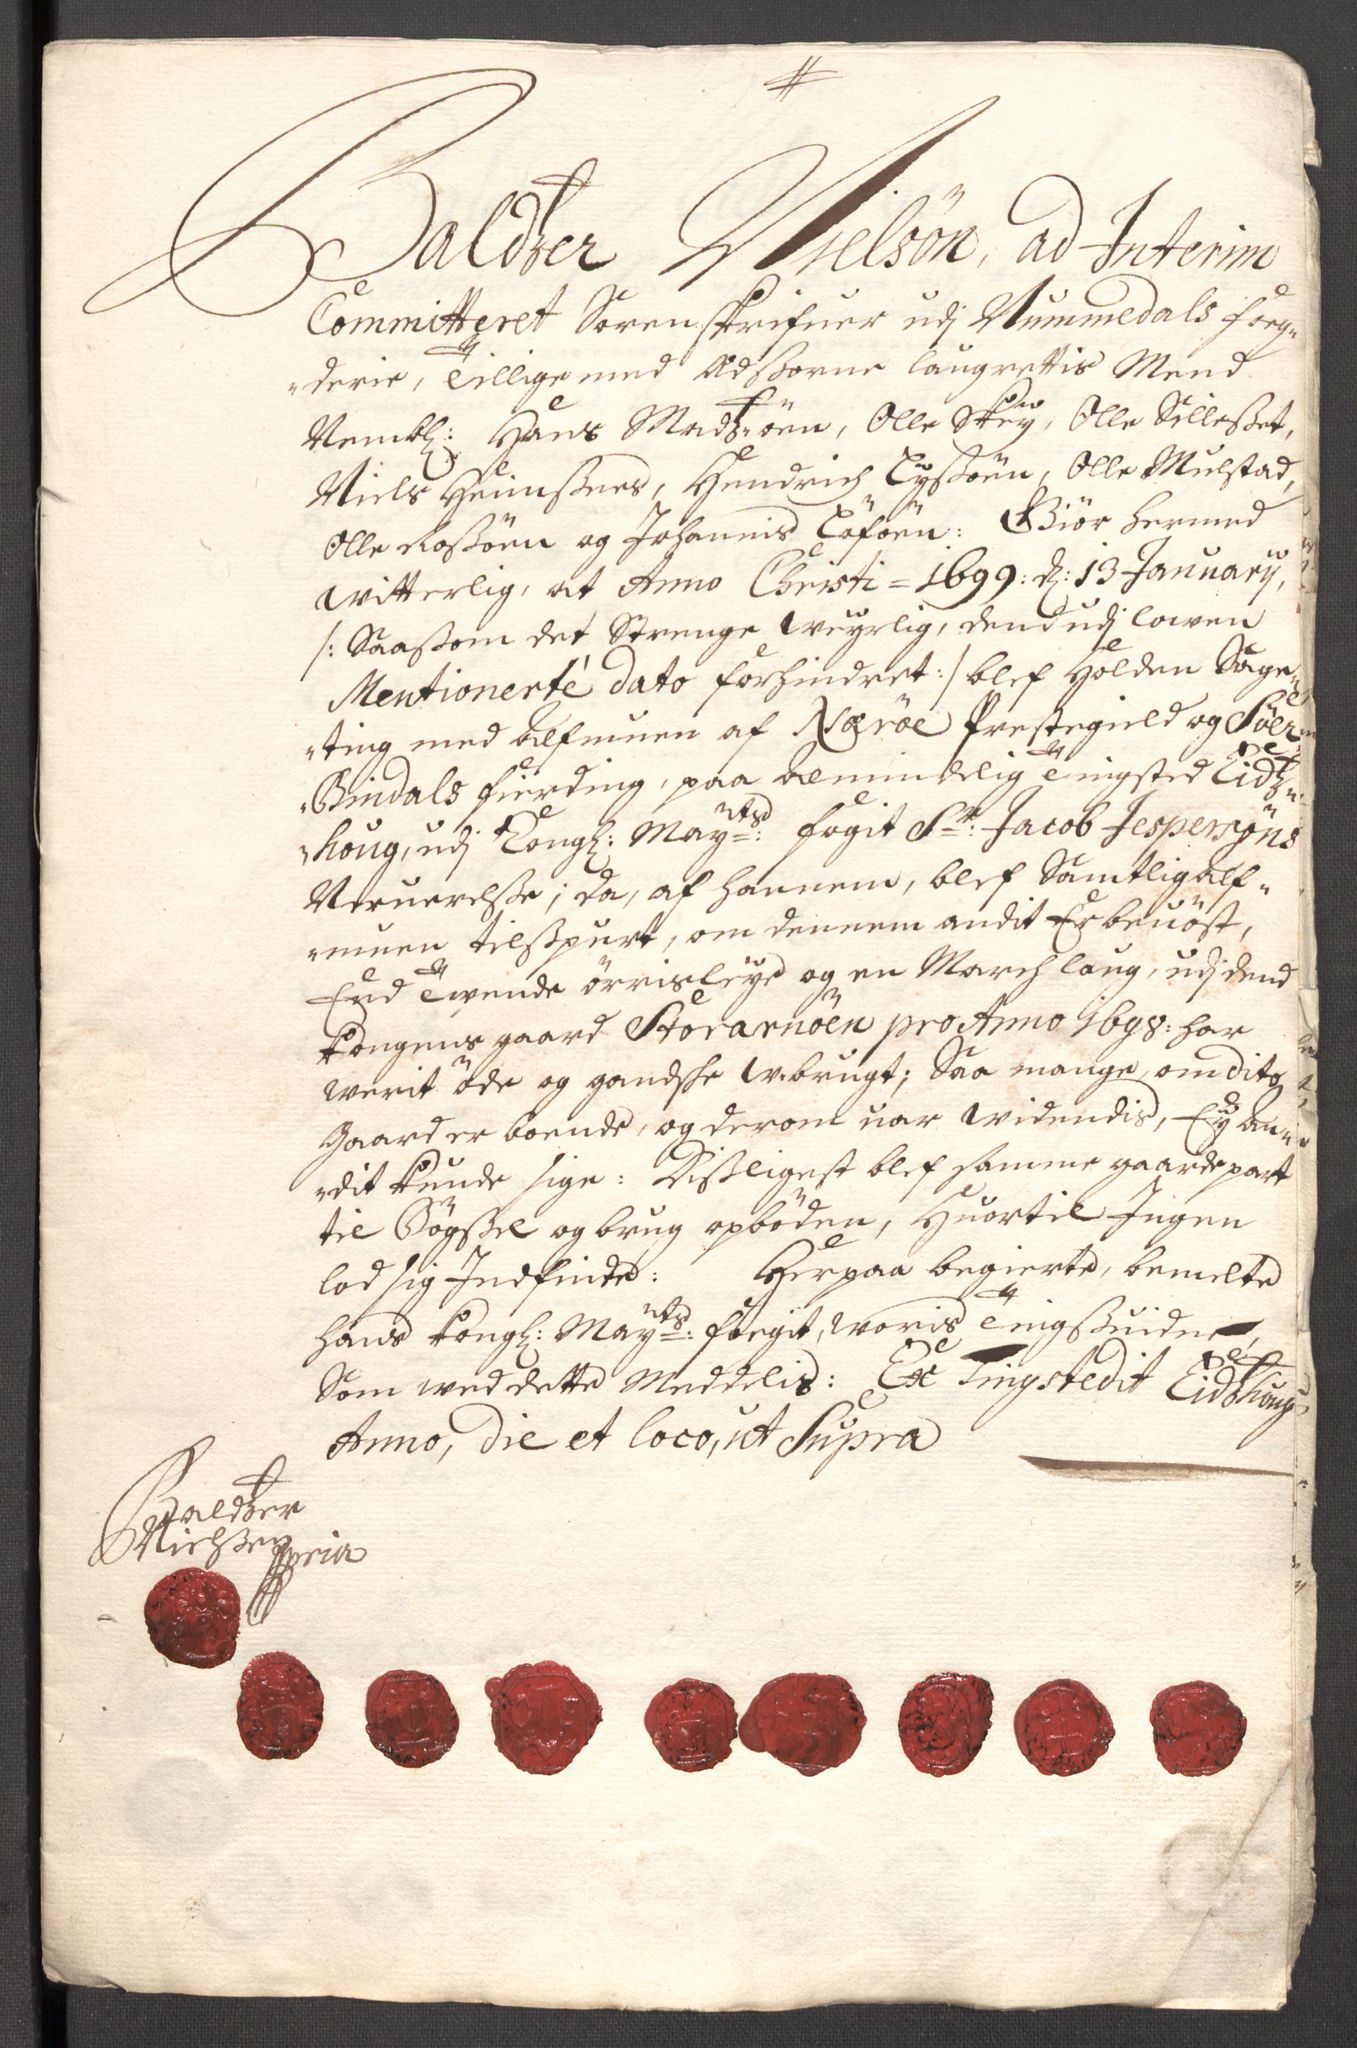 Baldtzer Nielsön, ad Interim
Committeret Sorenskrifuer udj Nummedals foeg-
-derie, Tillige med Edsorne laugrettis Mend
Nembl: Hans Madtzöen, Olle Skey, Olle Sillesset,
Niels Heimsnes, Hendrich Tyssöen, Olle Mulstad,
Olle Rossöen og Johannis Töföen: Giör hermed
witterlig, at Anno Christi = 1699: d: 13 January,
/: Saasom det Strenge weyrlig, dend udj lowen
Mentionerte dato forhindret :/ blef Holden Sage-
-ting med Almuen af Nærøe Prestegield og Söer
Bindals fierding, paa almindelig Tingsted Eidtz-
-houg, udj Kongl: Mayts: fogit Sr: Jacob Jespersöns
Neruerelsse; da, af hannem, blef Samtlig Alf-
-muen tilspurt, om dennem andit Er beuöst,
End Twende örrisleye og en March laug, udj dend
kongens gaard Storarnöen pro Anno 1698: har
werit öde og gandsche w-brugt; Saa mange, om dito
Gaard er boende, og derom uar widendis, Ey an-
-dit kunde sige: Disligest blef samme gaardepart
til Bögsel og brug opböden, Huortil Ingen
lod sig Indfinde: Herpaa begierte, bemelte
hans kongl: Mayts: foegit, woris Tingsuidne,
Som wed dette Meddelis: Ex Tingstedit Eidtzhoug
Anno, die et loco, ut Supra
Baldtzer
Nielssen
Mpria